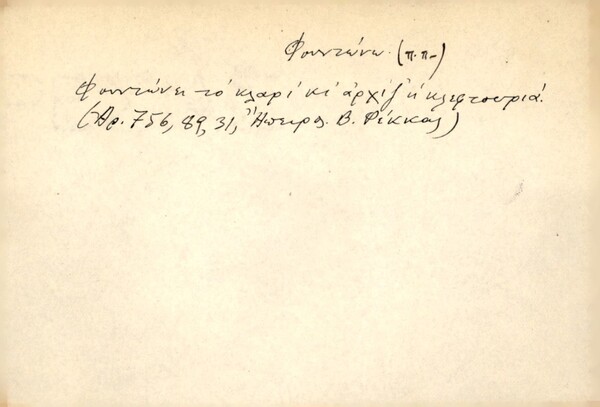 Φουντώνω. (π.π.)
Φουντώνει τό κλαρί κι' ἀρχίζ' ἡ κλεφτουριά.
(Ἀρ. 756, 89, 31, Ἤπειρος. Β. Φίκκας)